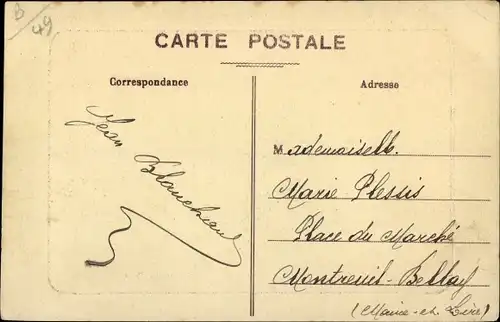 B
49
CARTE POSTALE
Correspondance
Adresse
Jean
Blanchard
Mademoiselle
Marie Plessis
Place du Marché
Montreuil-Bellay
(Maine-et-Loire)